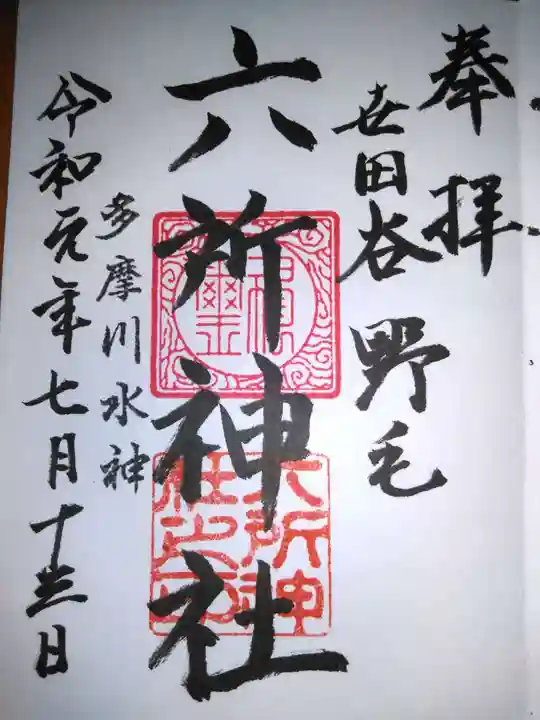 奉拝
世田谷 野毛
六所神社
多摩川水神
令和元年七月十三日
六所神社之印